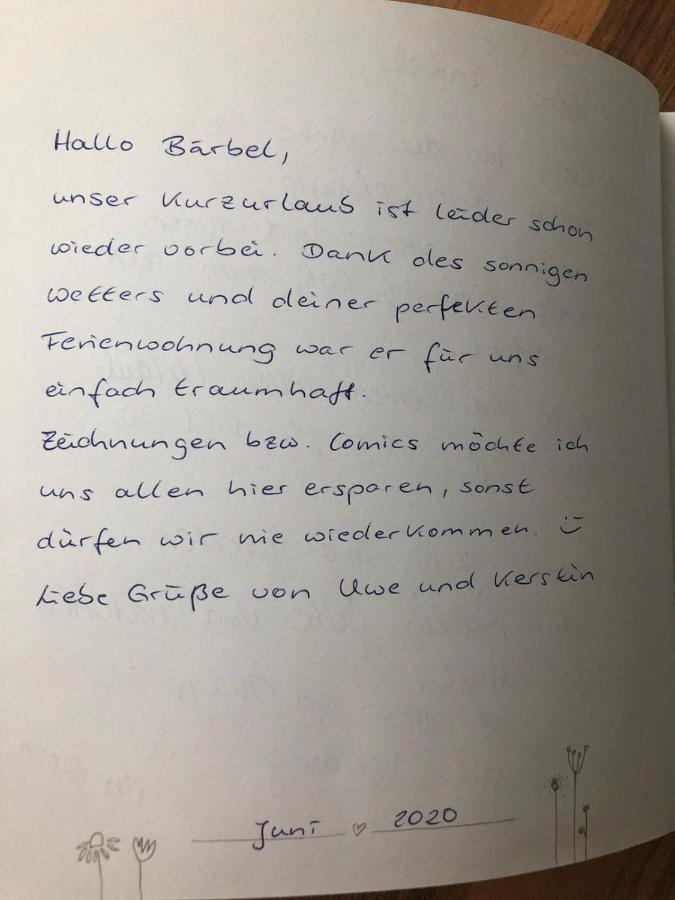 Hallo Bärbel,
unser Kurzurlaub ist leider schon
wieder vorbei. Dank des sonnigen
Wetters und deiner perfekten
Ferienwohnung war er für uns
einfach traumhaft.
Zeichnungen bzw. Comics möchte ich
uns allen hier ersparen, sonst
dürfen wir nie wiederkommen. :)
Liebe Grüße von Uwe und Kerstin
Juni ♡ 2020